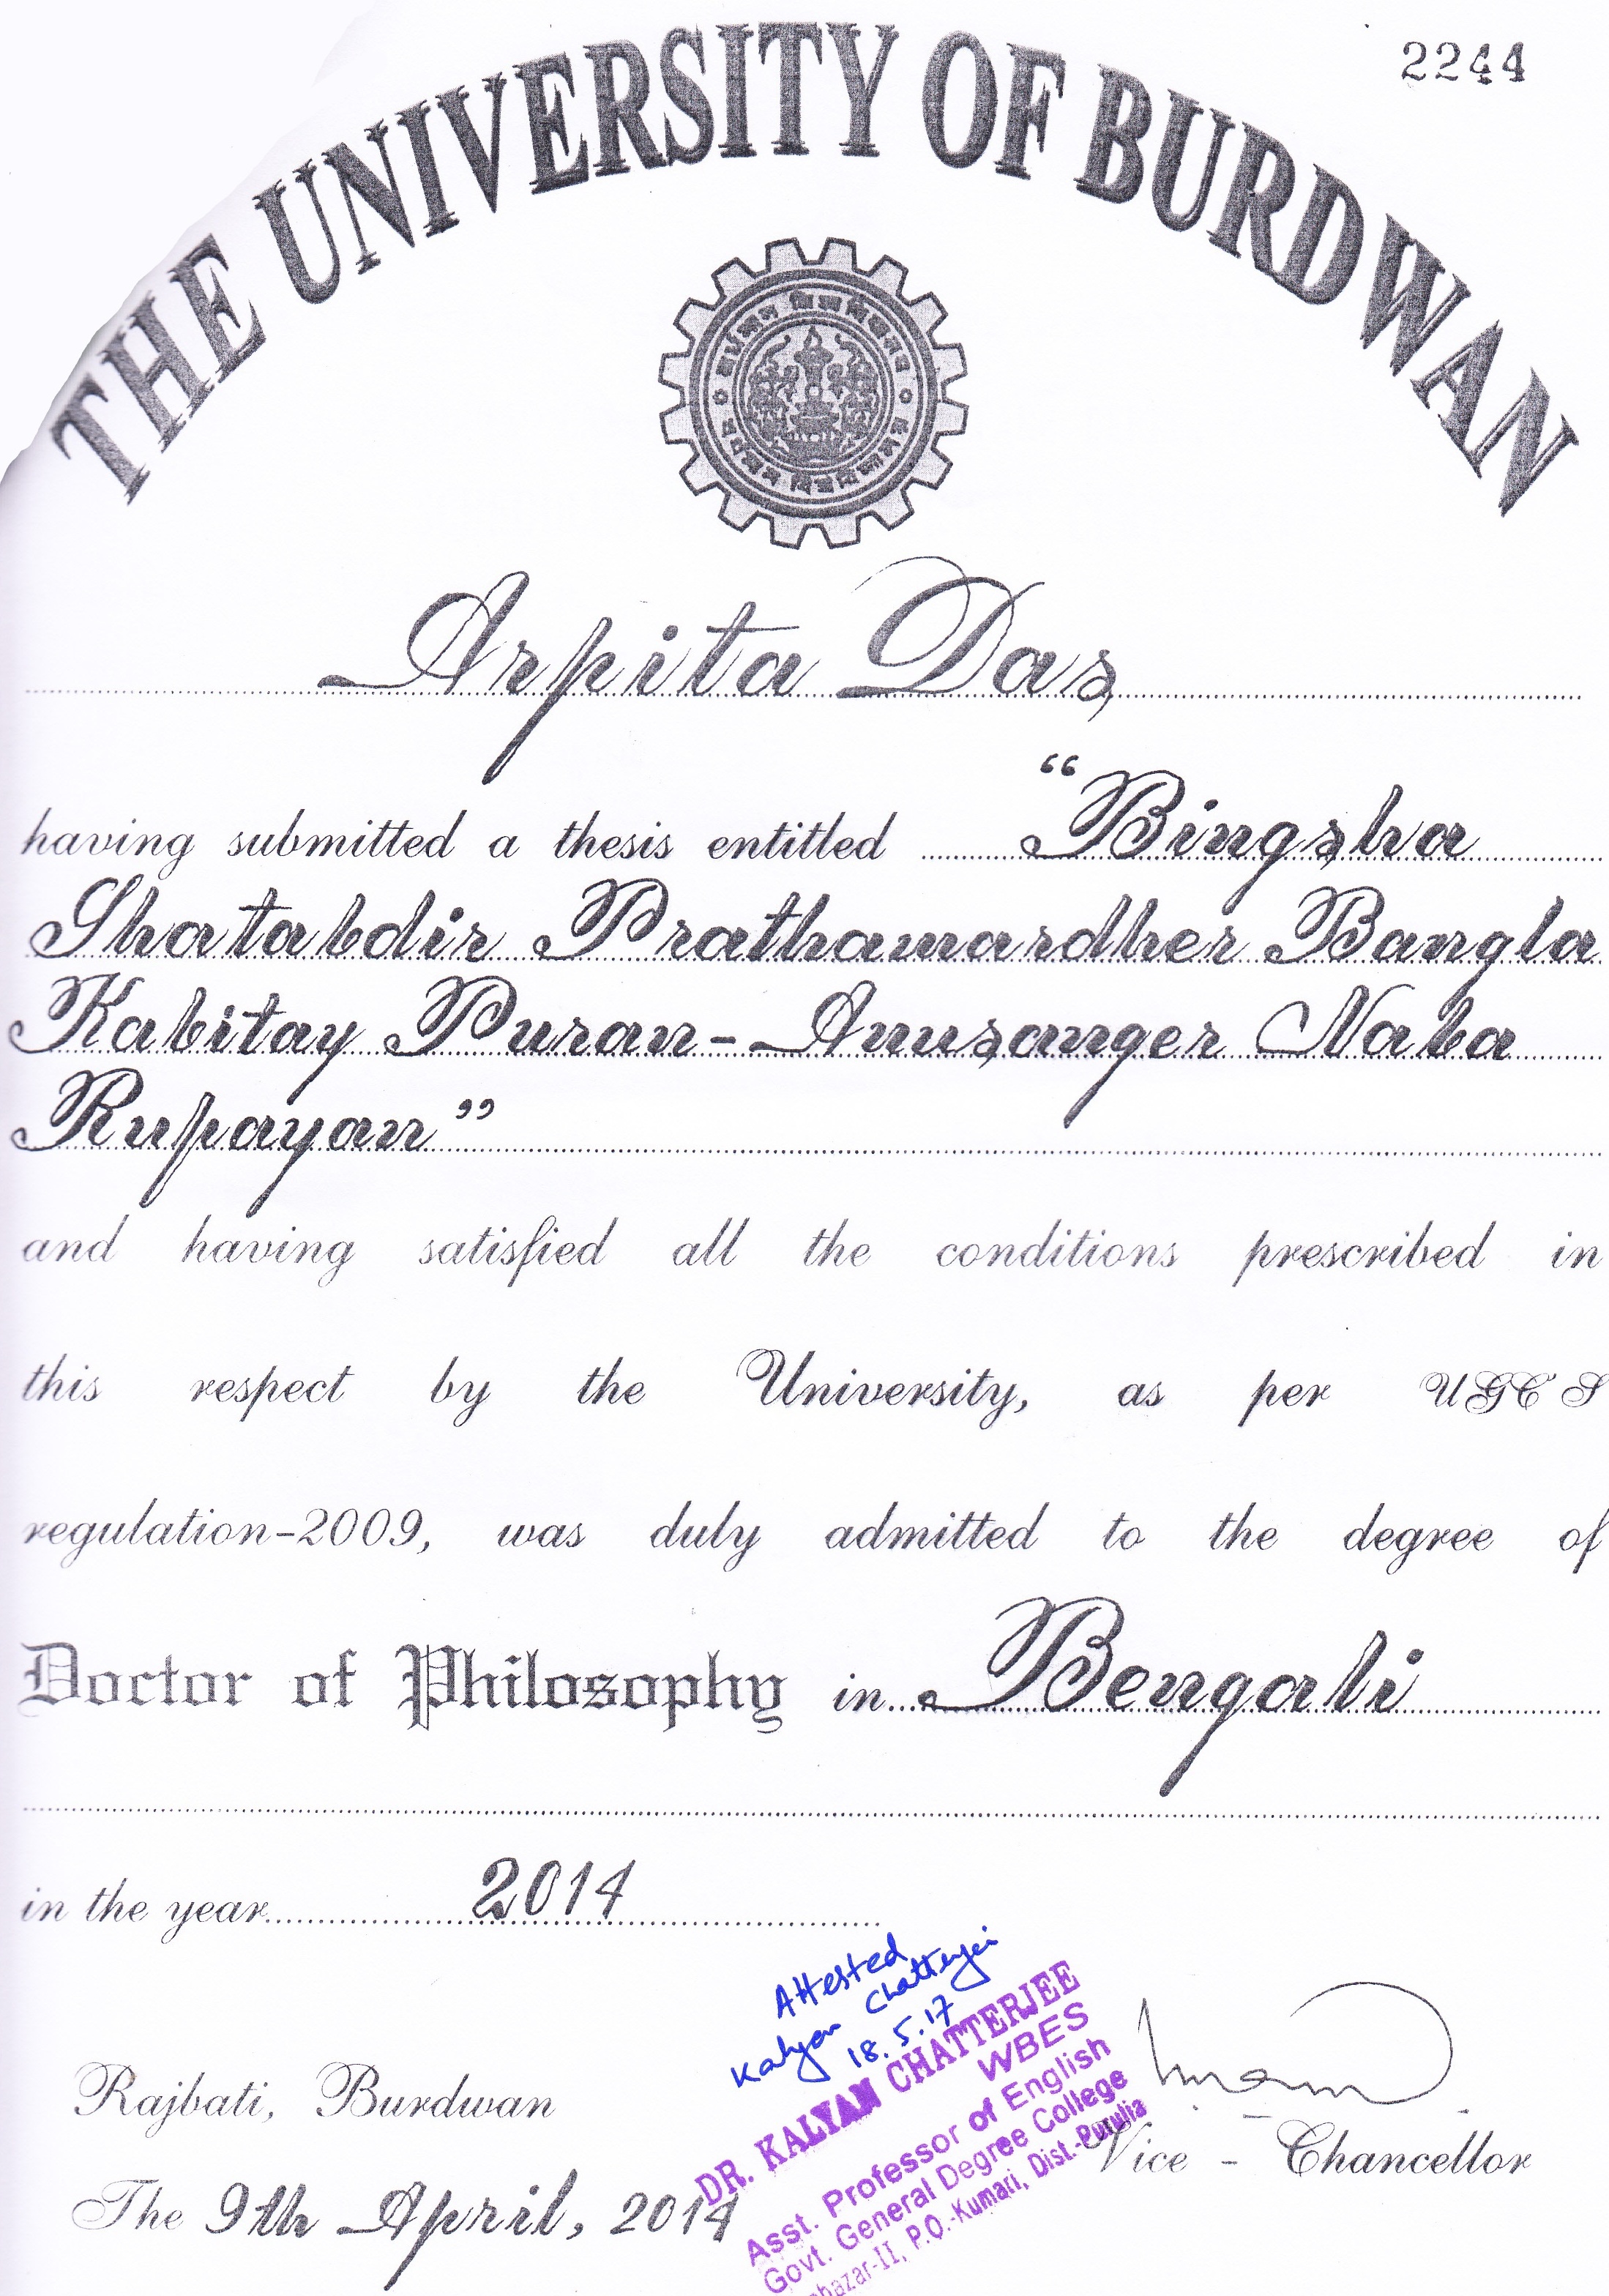 2244
THE UNIVERSITY OF BURDWAN
Arpita Das
having submitted a thesis entitled "Bingsha
Shatabdir Prathamardher Bangla
Kabitay Puran-Anusanger Naba
Rupayan"
and having satisfied all the conditions prescribed in
this respect by the University, as per UGC S
regulation-2009, was duly admitted to the degree of
Doctor of Philosophy in Bengali
in the year 2014
Attested
Kalyan Chatterjee
18.5.17
DR. KALYAN CHATTERJEE
WBES
Asst. Professor of English
Govt. General Degree College
bazar-II, P.O.-Kumari, Dist.-Purulia
Rajbati, Burdwan
Vice - Chancellor
The 9th April, 2014